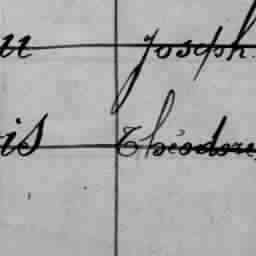 u Joseph
is Théodore